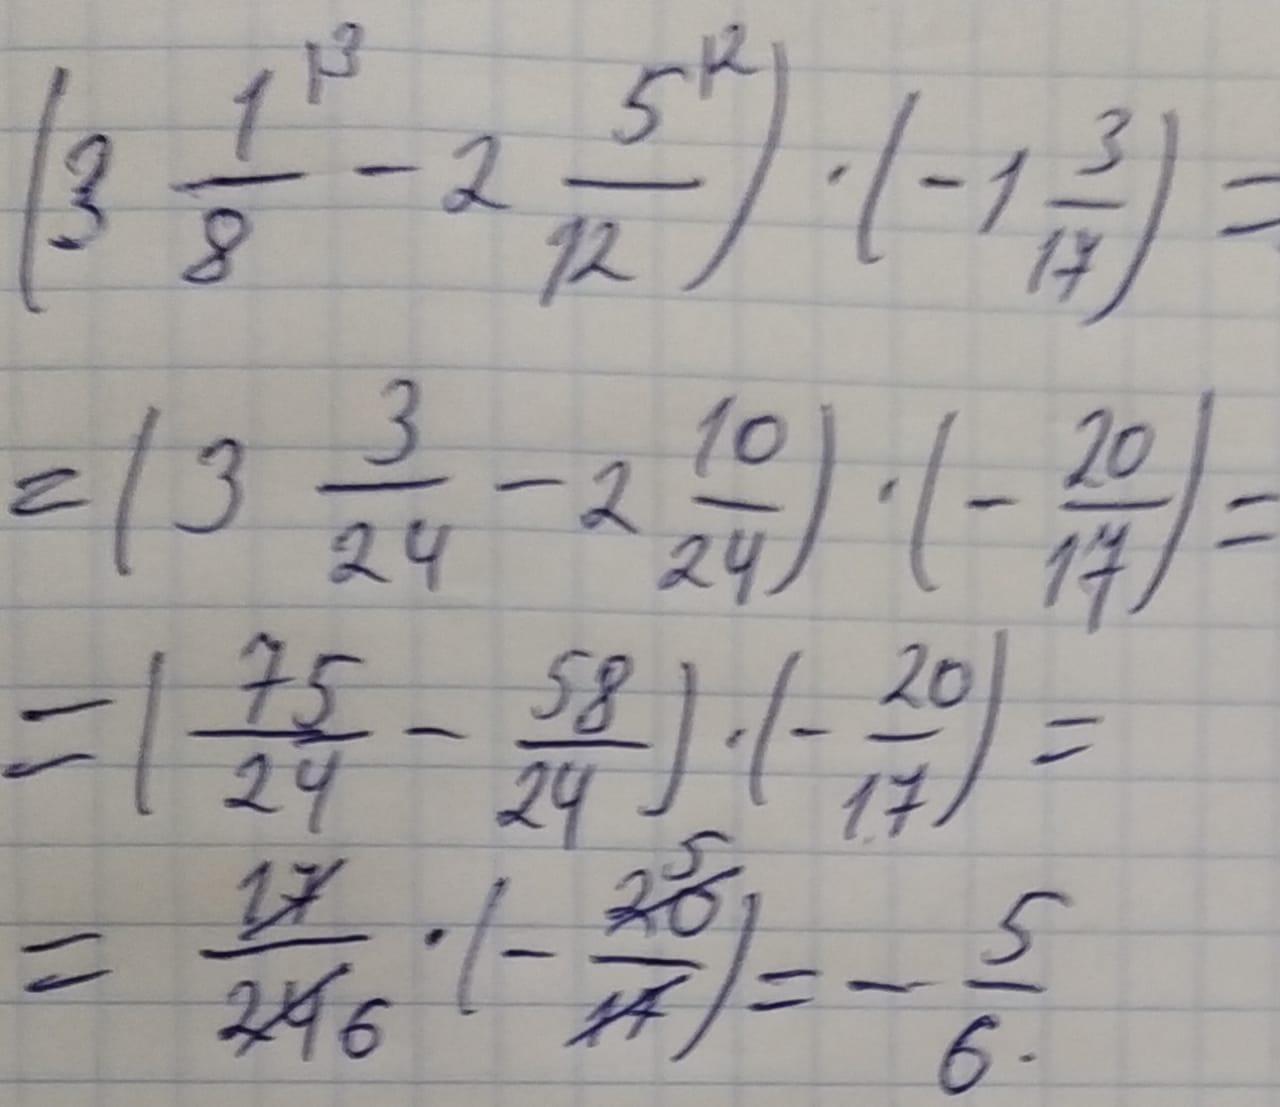 (3 1/8 |3 - 2 5/12 |2) · (-1 3/17) =
= (3 3/24 - 2 10/24) · (- 20/17) =
= (75/24 - 58/24) · (- 20/17) =
= 17/24 6 · (- 20 5/17) = - 5/6.